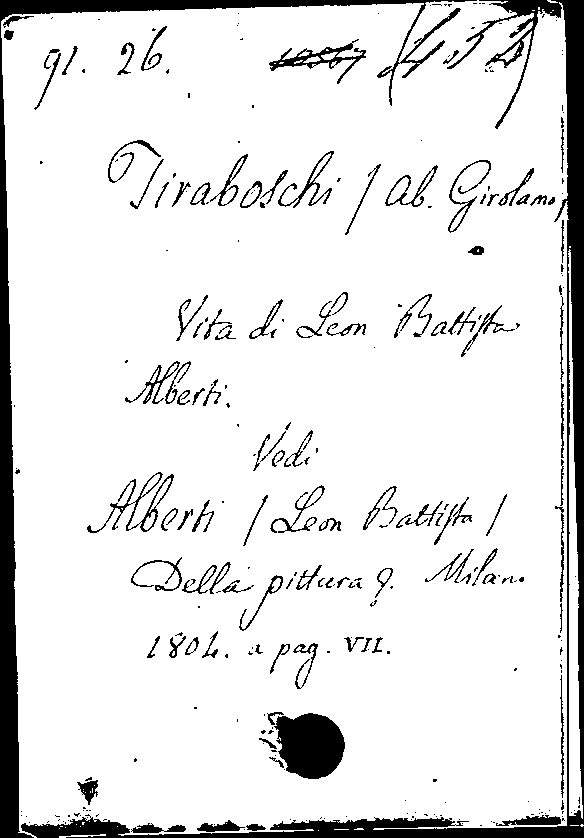 91. 26. (452)
Tiraboschi / Ab. Girolamo /
Vita di Leon Battista
Alberti.
Vedi
Alberti / Leon Battista /
Della pittura &. Milano
1804. a pag. VII.